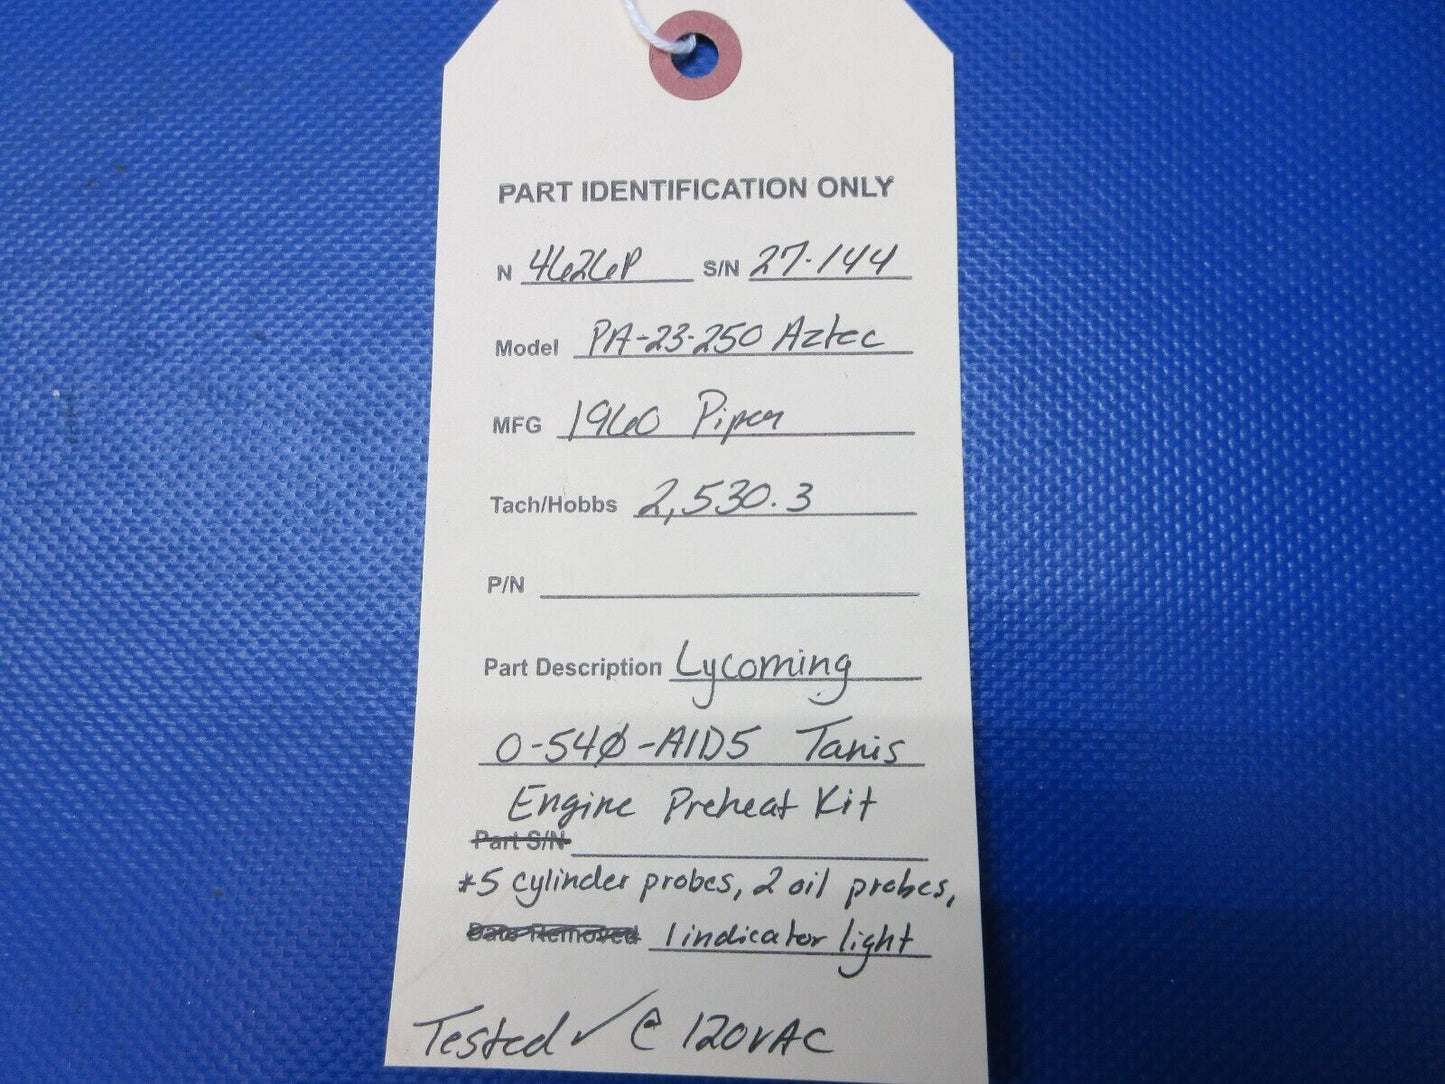 PART IDENTIFICATION ONLY
N 4626P S/N 27-144
Model PA-23-250 Aztec
MFG 1960 Piper
Tach/Hobbs 2,530.3
P/N
Part Description Lycoming
O-540-A1D5 Tanis
Engine Preheat Kit
Part S/N
*5 cylinder probes, 2 oil probes,
Date Removed 1 indicator light
Tested ✓ @ 120VAC